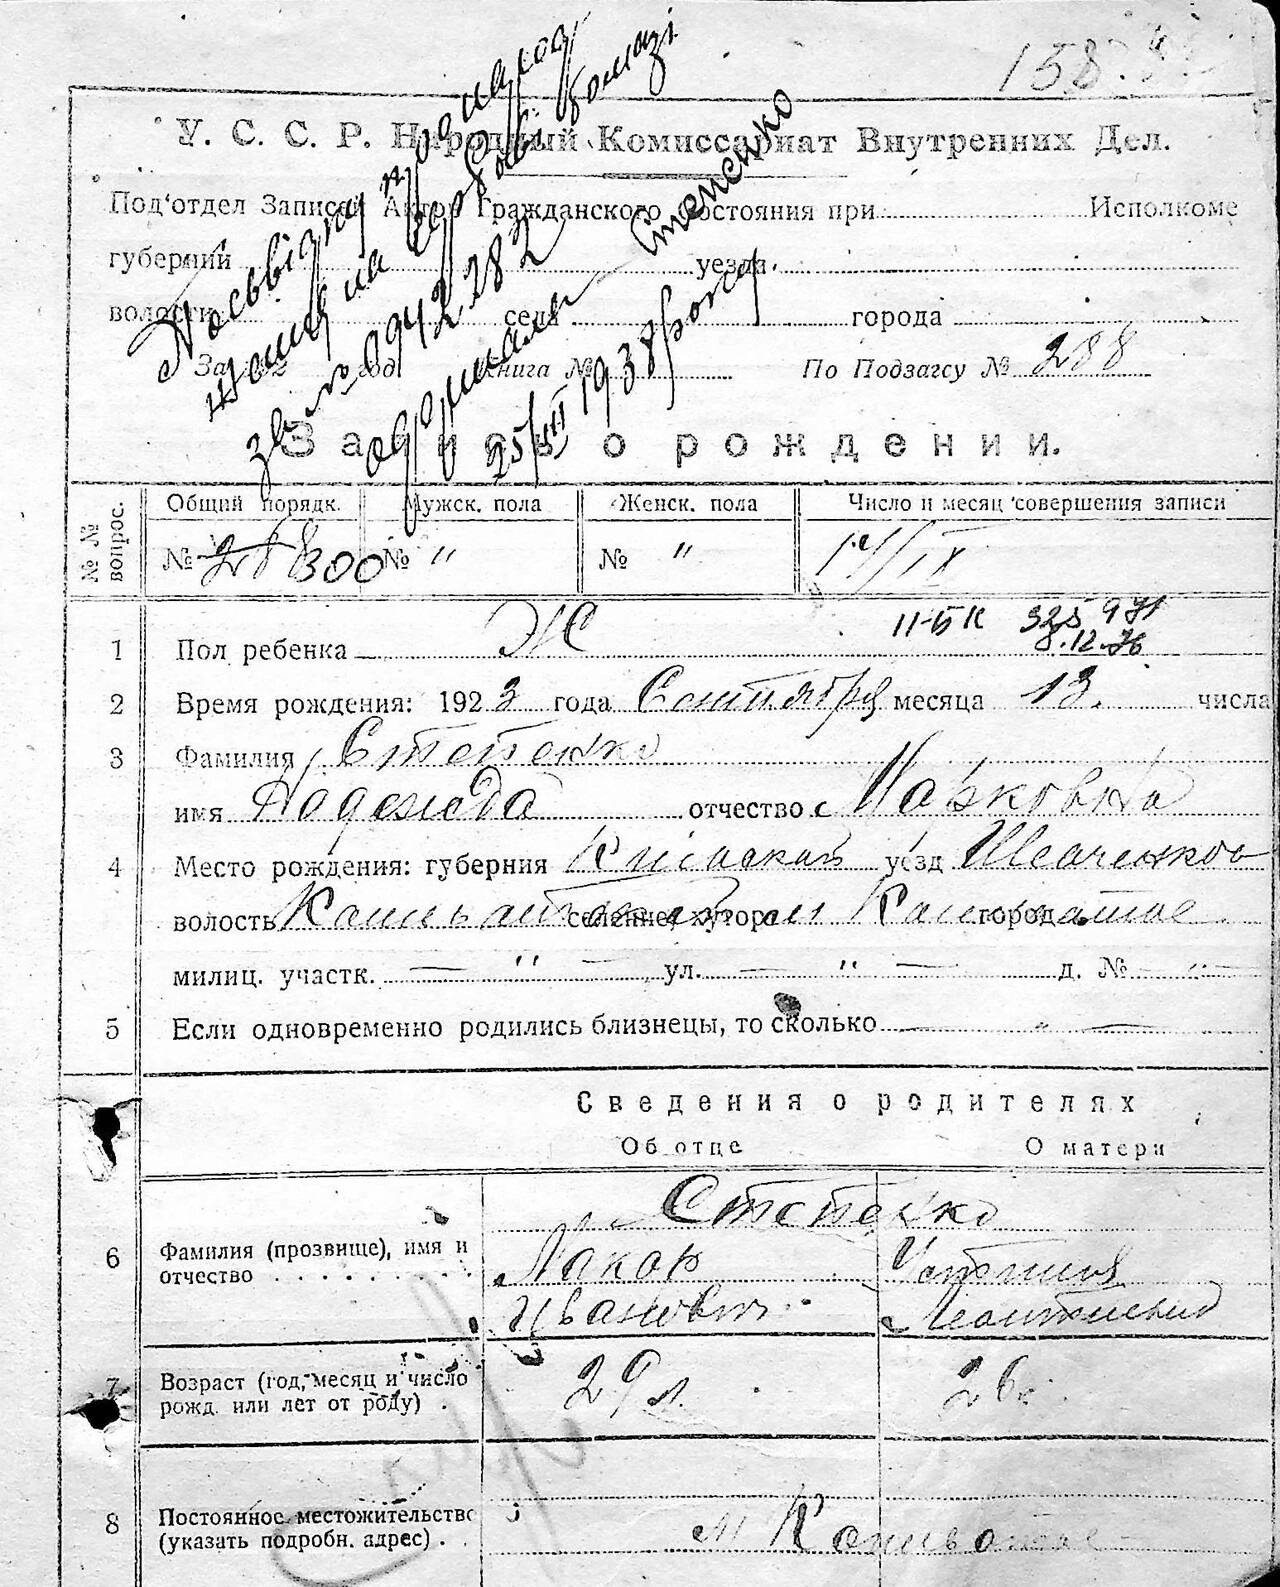 158.
У. С. С. Р. Народный Комиссариат Внутренних Дел.
Под'отдел Записей Актов Гражданского состояния при Исполкоме
губерний уезда
волости села города
За 192 год. Книга № По Подзагсу № 288
Запись о рождении.
зв. № 0942282
одержали Степенко
25/III 1938 року
№№ вопрос. Общий порядк. Мужск. пола Женск. пола Число и месяц совершения записи
№ 288 300 № " № " 14/IX
11-БК 325971
8.12.76
1 Пол ребенка Ж
2 Время рождения: 1923 года Сентября месяца 13. числа
3 Фамилия Степенко
имя Надежда отчество Макаровна
4 Место рождения: губерния Киевская уезд Шевченков
волость селение, хутор м город
милиц. участк. — " — ул. — " — д. № — " —
5 Если одновременно родились близнецы, то сколько — " —
Сведения о родителях
Об отце О матери
Степенко
6 Фамилия (прозвище), имя и отчество Макар Устиния
Иванович Леонтиевна
7 Возраст (год, месяц и число рожд. или лет от роду) 29 л. 26 л.
8 Постоянное местожительство (указать подробн. адрес) м